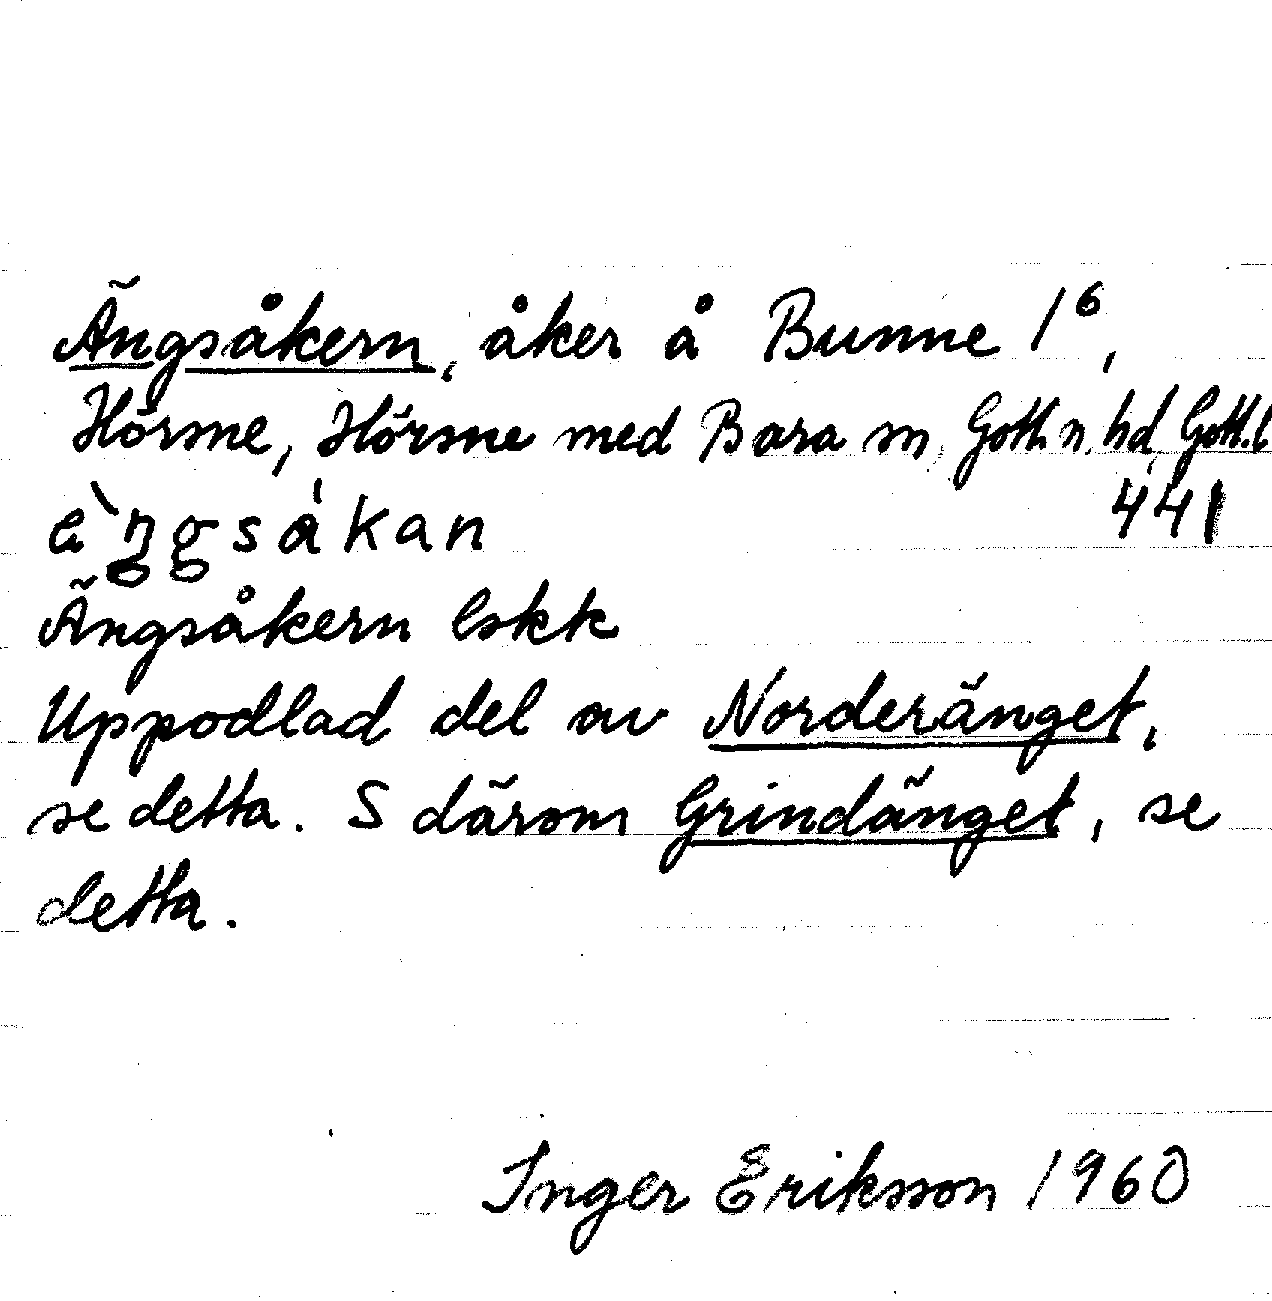 Ängsåkern, åker å Bunne 1⁶,
Hörsne, Hörsne med Bara sn, Gotl. n. hd, Gotl. l
441
Ängsåkern lskk
Uppodlad del av Norderänget,
se detta. S därom Grindänget, se
detta.
Inger Eriksson 1960